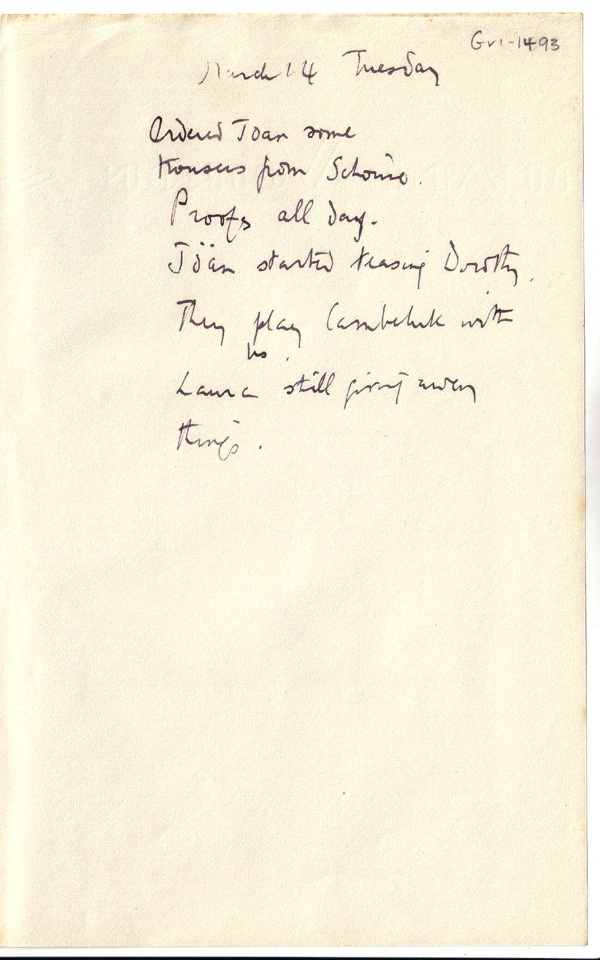 Gv1-1493
March 14 Tuesday
Ordered Joan some
trousers from
Proofs all day.
Jöän started teasing Dorothy.
They play with
us.
Laura still giving away
things.